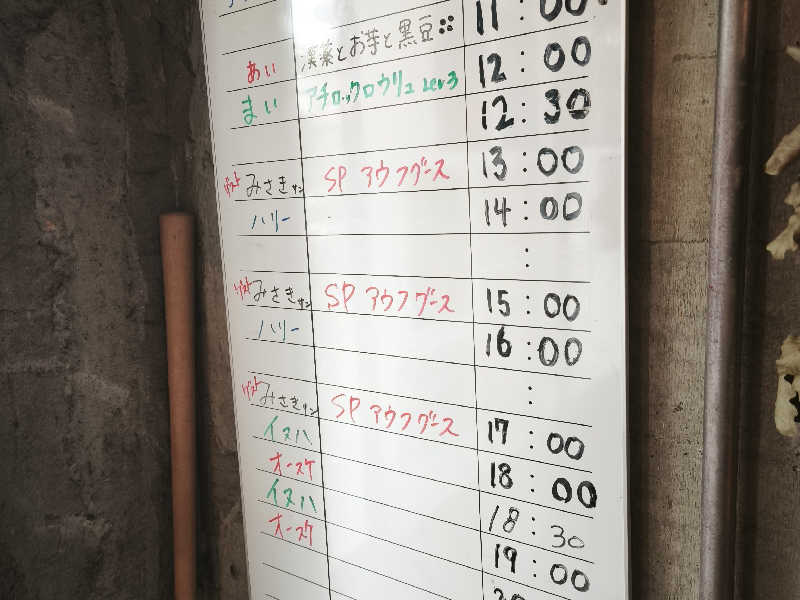 11:00
あい 漢薬とお芋と黒豆 12:00
まい アチロックロウリュ Lev3 12:30
ゲスト みさきサン SP アウフグース 13:00
ハリー 14:00
:
ゲスト みさきサン SP アウフグース 15:00
ハリー 16:00
:
ゲスト みさきサン SP アウフグース 17:00
イヌハ 18:00
オースケ 18:30
イヌハ 19:00
オースケ